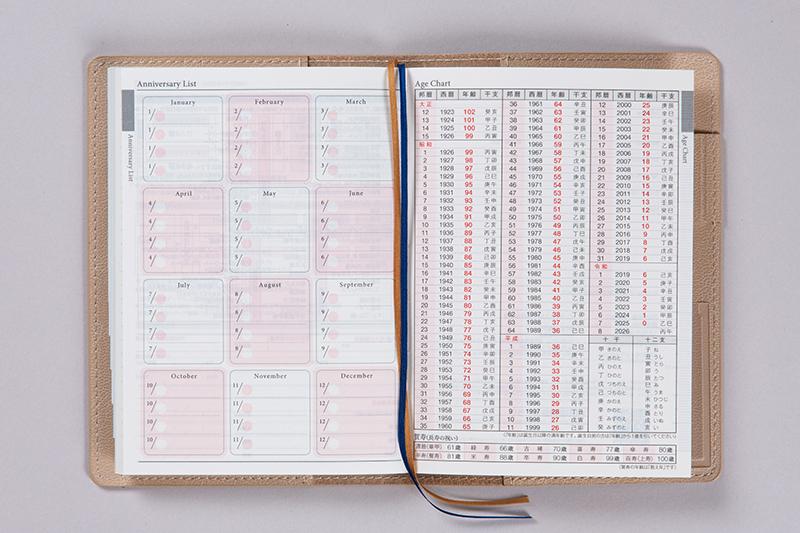 Anniversary List
January
1/
1/
1/
1/
February
2/
2/
2/
2/
March
3/
3/
3/
3/
April
4/
4/
4/
4/
May
5/
5/
5/
5/
June
6/
6/
6/
6/
July
7/
7/
7/
7/
August
8/
8/
8/
8/
September
9/
9/
9/
9/
October
10/
10/
10/
10/
November
11/
11/
11/
11/
December
12/
12/
12/
12/
Anniversary List
Age Chart
邦暦 西暦 年齢 干支
大正
12 1923 102 癸亥
13 1924 101 甲子
14 1925 100 乙丑
15 1926 99 丙寅
昭和
1 1926 99 丙寅
2 1927 98 丁卯
3 1928 97 戊辰
4 1929 96 己巳
5 1930 95 庚午
6 1931 94 辛未
7 1932 93 壬申
8 1933 92 癸酉
9 1934 91 甲戌
10 1935 90 乙亥
11 1936 89 丙子
12 1937 88 丁丑
13 1938 87 戊寅
14 1939 86 己卯
15 1940 85 庚辰
16 1941 84 辛巳
17 1942 83 壬午
18 1943 82 癸未
19 1944 81 甲申
20 1945 80 乙酉
21 1946 79 丙戌
22 1947 78 丁亥
23 1948 77 戊子
24 1949 76 己丑
25 1950 75 庚寅
26 1951 74 辛卯
27 1952 73 壬辰
28 1953 72 癸巳
29 1954 71 甲午
30 1955 70 乙未
31 1956 69 丙申
32 1957 68 丁酉
33 1958 67 戊戌
34 1959 66 己亥
35 1960 65 庚子
邦暦 西暦 年齢 干支
36 1961 64 辛丑
37 1962 63 壬寅
38 1963 62 癸卯
39 1964 61 甲辰
40 1965 60 乙巳
41 1966 59 丙午
42 1967 58 丁未
43 1968 57 戊申
44 1969 56 己酉
45 1970 55 庚戌
46 1971 54 辛亥
47 1972 53 壬子
48 1973 52 癸丑
49 1974 51 甲寅
50 1975 50 乙卯
51 1976 49 丙辰
52 1977 48 丁巳
53 1978 47 戊午
54 1979 46 己未
55 1980 45 庚申
56 1981 44 辛酉
57 1982 43 壬戌
58 1983 42 癸亥
59 1984 41 甲子
60 1985 40 乙丑
61 1986 39 丙寅
62 1987 38 丁卯
63 1988 37 戊辰
64 1989 36 己巳
平成
1 1989 36 己巳
2 1990 35 庚午
3 1991 34 辛未
4 1992 33 壬申
5 1993 32 癸酉
6 1994 31 甲戌
7 1995 30 乙亥
8 1996 29 丙子
9 1997 28 丁丑
10 1998 27 戊寅
11 1999 26 己卯
邦暦 西暦 年齢 干支
12 2000 25 庚辰
13 2001 24 辛巳
14 2002 23 壬午
15 2003 22 癸未
16 2004 21 甲申
17 2005 20 乙酉
18 2006 19 丙戌
19 2007 18 丁亥
20 2008 17 戊子
21 2009 16 己丑
22 2010 15 庚寅
23 2011 14 辛卯
24 2012 13 壬辰
25 2013 12 癸巳
26 2014 11 甲午
27 2015 10 乙未
28 2016 9 丙申
29 2017 8 丁酉
30 2018 7 戊戌
31 2019 6 己亥
令和
1 2019 6 己亥
2 2020 5 庚子
3 2021 4 辛丑
4 2022 3 壬寅
5 2023 2 癸卯
6 2024 1 甲辰
7 2025 0 乙巳
8 2026 丙午
十干 十二支
甲 きのえ 子 ね
乙 きのと 丑 うし
丙 ひのえ 寅 とら
丁 ひのと 卯 う
戊 つちのえ 辰 たつ
己 つちのと 巳 み
庚 かのえ 午 うま
辛 かのと 未 ひつじ
壬 みずのえ 申 さる
癸 みずのと 酉 とり
戌 いぬ
亥 い
(「年齢」は誕生日以降の満年齢です。誕生日前の方は「年齢」から1歳を引いてください)
賀寿(長寿の祝い)
還暦(華甲) 61歳 緑寿 66歳 古稀 70歳 喜寿 77歳 傘寿 80歳
半寿(盤寿) 81歳 米寿 88歳 卒寿 90歳 白寿 99歳 百寿(上寿) 100歳
(賀寿の年齢は「数え年」です)
Age Chart